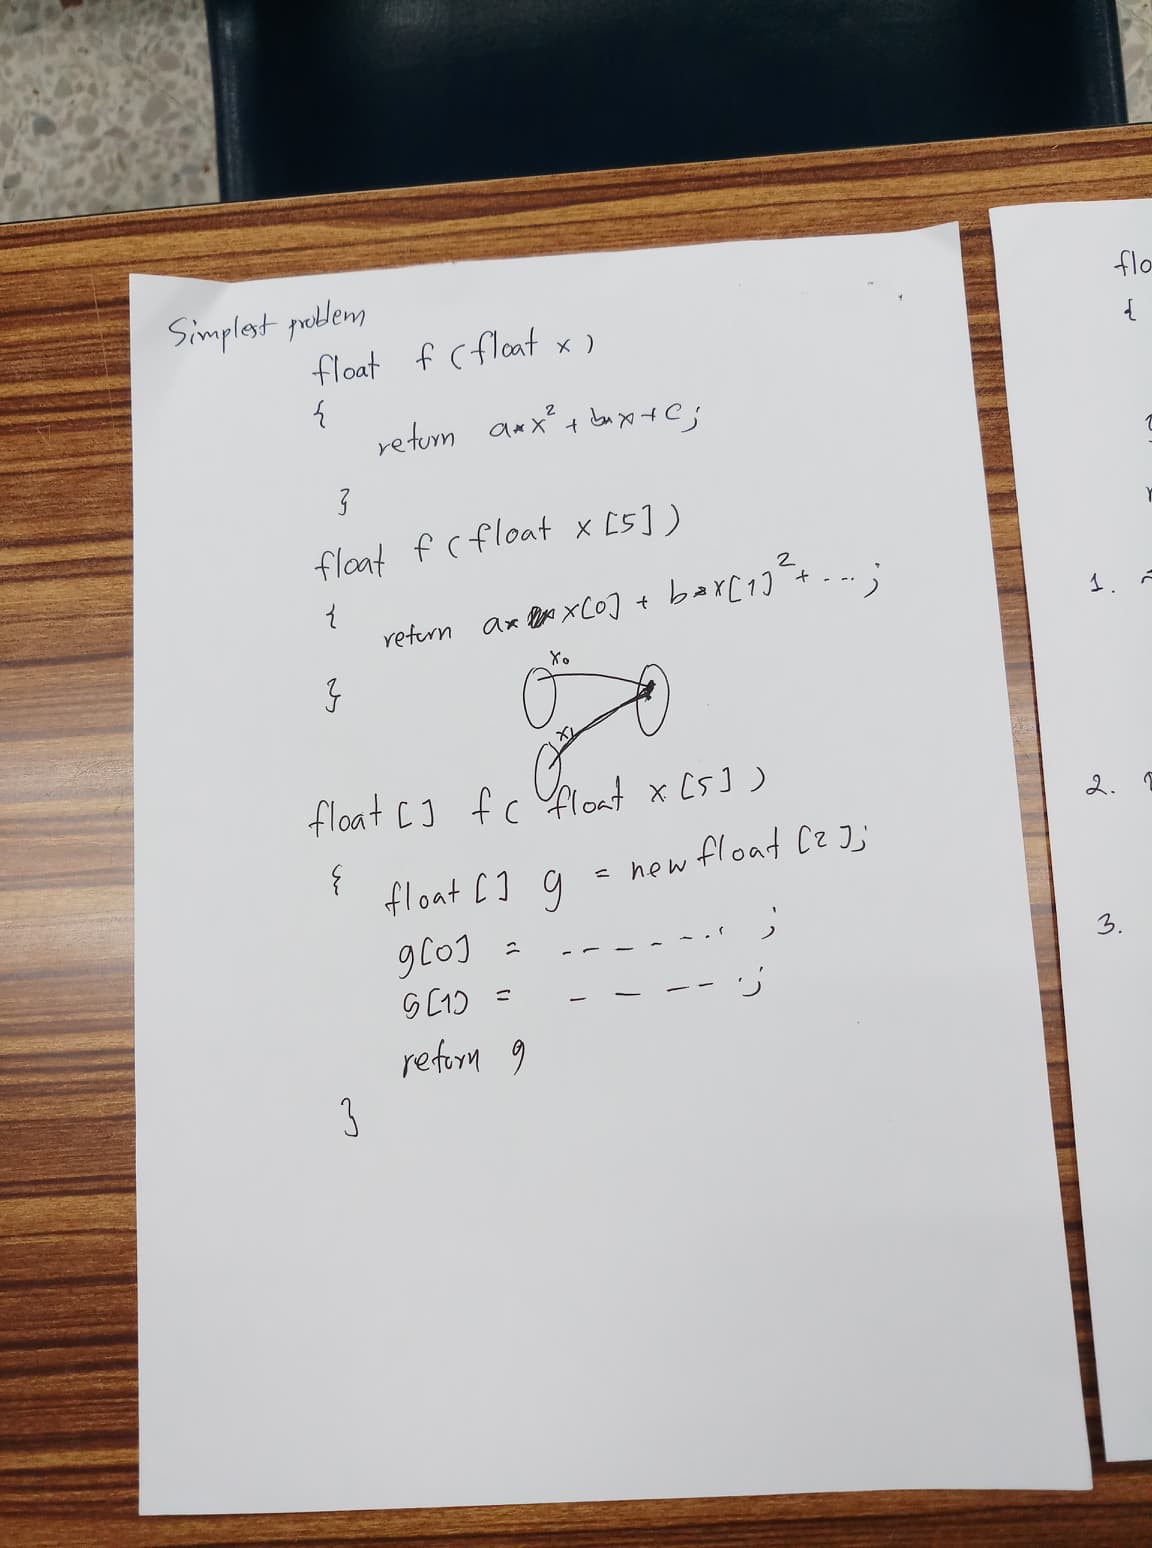 Simplest problem
float f (float x)
{
return a*x² + b*x+c;
}
float f (float x [5])
{
return a* x[0] + b*x[1]² + ... ;
}
x₀
x₁
float [] f ( float x [5] )
{ float [] g = new float [2];
g[0] = - - - - - . . ;
G[1] = - - - - . ;
return g
}
flo
{
1.
2.
3.